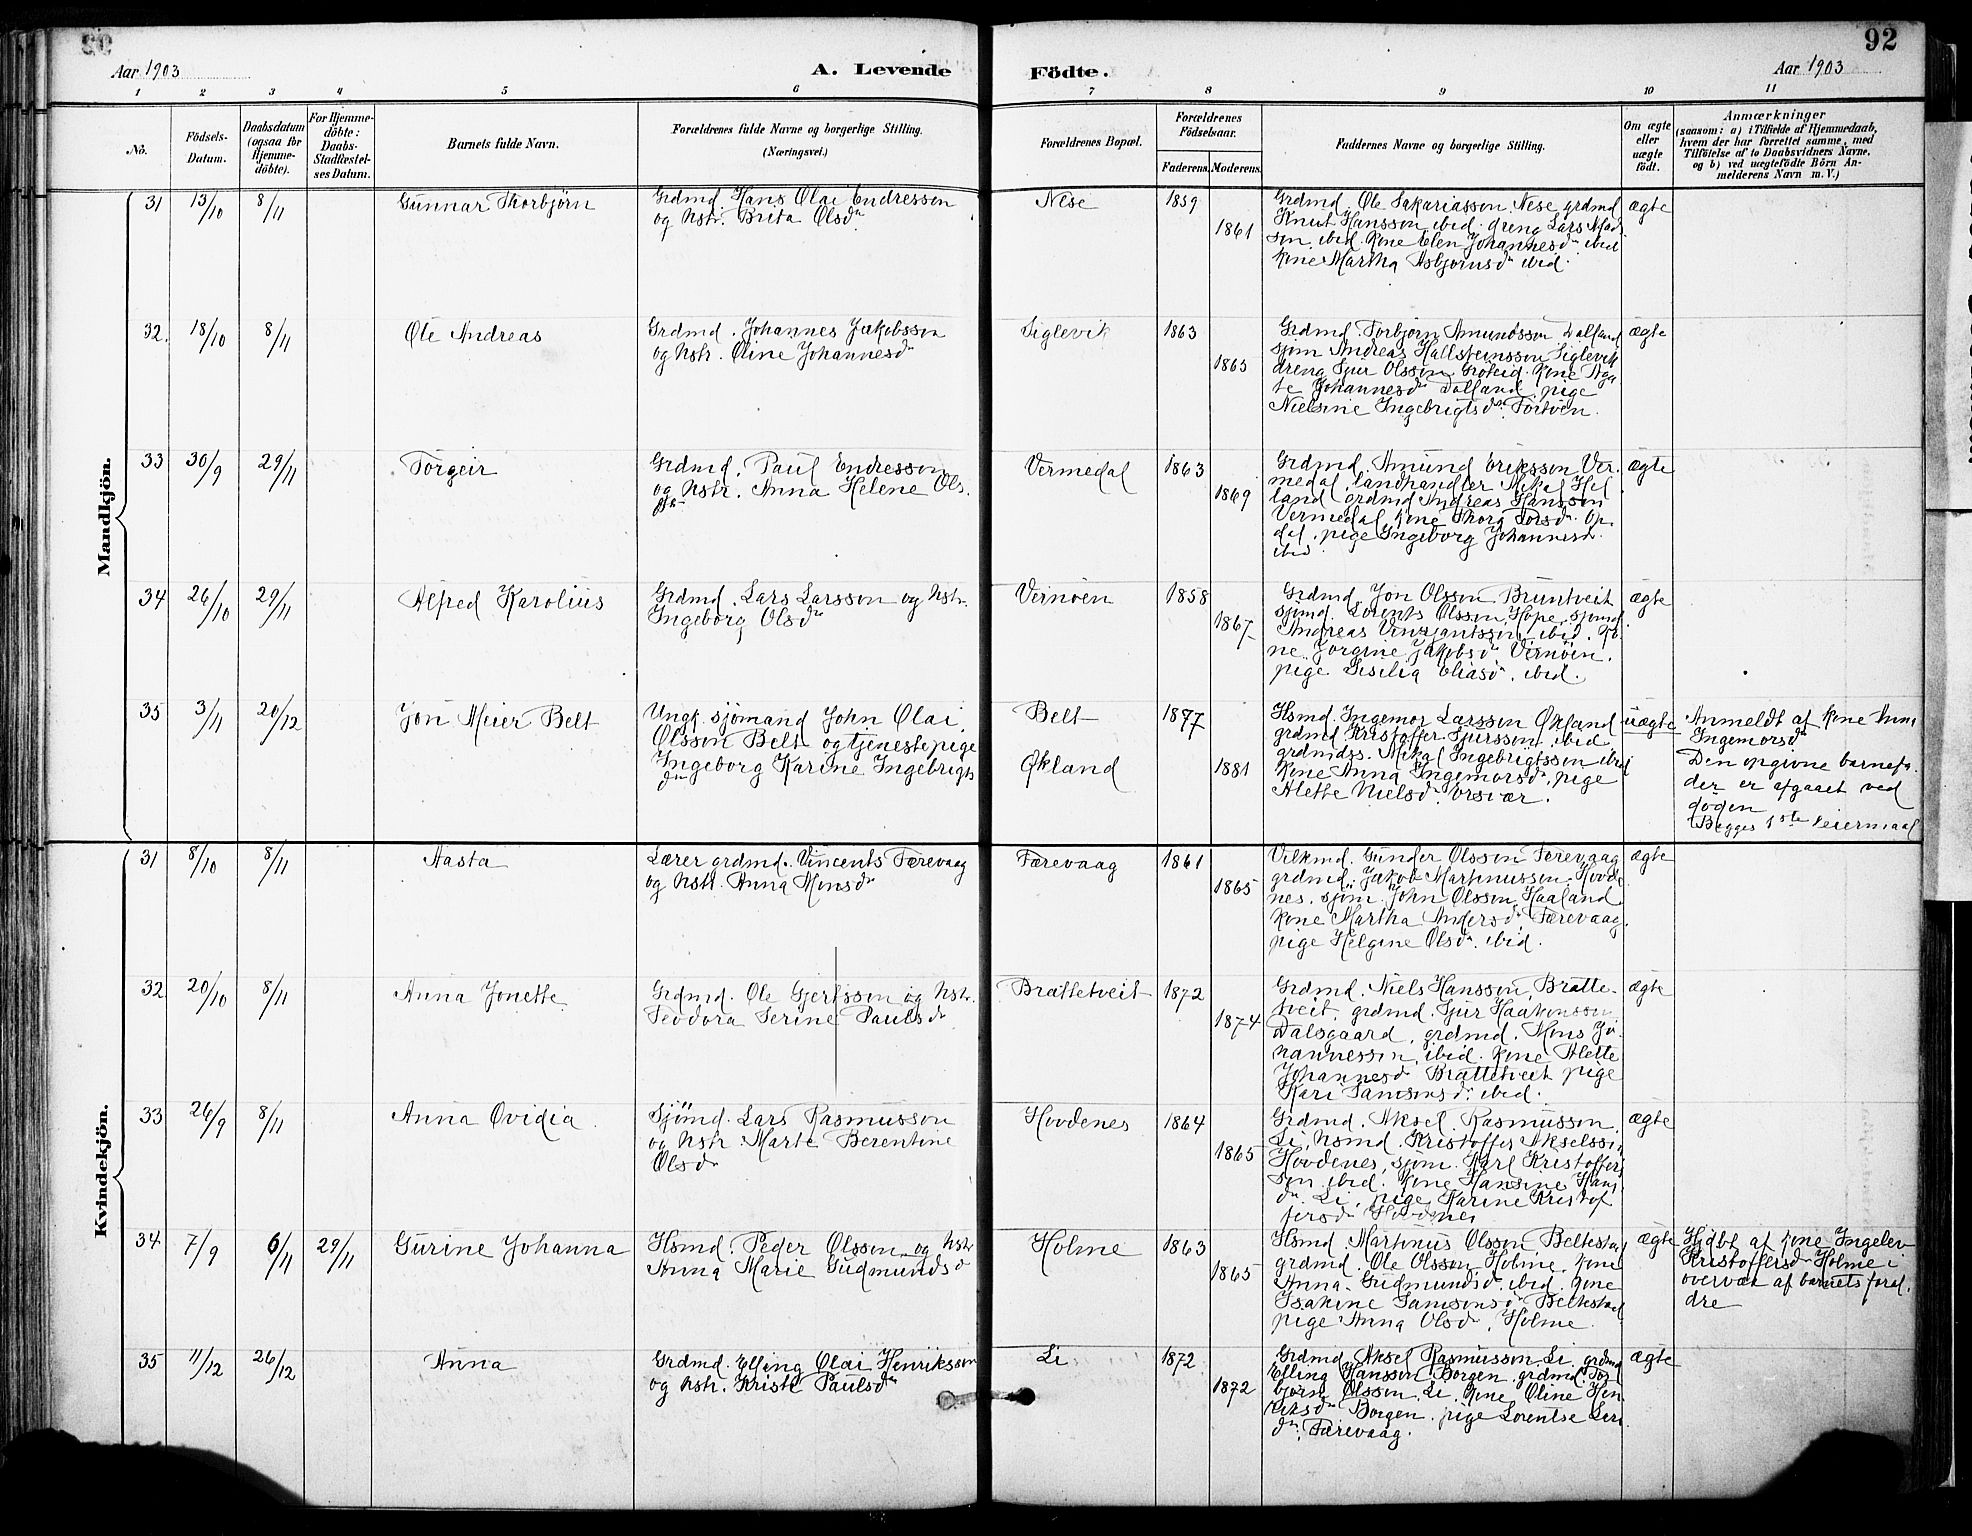 92
Aar 1903
A. Levende Födte.
Aar 1903
1 2 3 4 5 6 7 8 9 10 11
No.
Födsels-Datum.
Daabsdatum (ogsaa for Hjemme-döbte).
For Hjemme-döbte: Daabs-Stadfæstel-ses Datum.
Barnets fulde Navn.
Forældrenes fulde Navne og borgerlige Stilling.
(Næringsvei.)
Forældrenes Bopæl.
Forældrenes Födselsaar.
Faderens. Moderens.
Faddernes Navne og borgerlige Stilling.
Om ægte eller uægte födt.
Anmærkninger
(saasom: a) i Tilfælde af Hjemmedaab,
hvem der har forrettet samme, med
Tilföielse af to Daabsvidners Navne,
og b) ved uægtefödte Börn An-
melderens Navn m. V.)
Mandkjön.
31 13/10 8/11 Gunnar Thorbjörn
Grdmd. Hans Olai Endresson
og hstr. Brita Olsdr.
Nese 1859 1861
Grdmd. Ole Sakariasson Nese grdmd
Knut Hansson ibid. dreng Lars Mad-
son ibid. Kone Elen Johannesdr ibid
Kone Martha Asbjørnsdr ibid.
ægte
32. 18/10 8/11 Ole Andreas
Grdmd. Johannes Jakobsson
og hstr. Oline Johannesdr
Siglevik 1863 1865
Grdmd. Torbjörn Amundsson Dalland
sjöm Andreas Hallsteinsson Siglevik
dreng Sjur Olsson Kone Aga-
te Johannesdr Dalland, pige
Nielsine Ingebrigtsdr.
ægte
33 30/9 29/11 Torgeir
Grdmd. Paul Endresson
og hstr. Anna Helene Ols-
dr
Vermedal 1863 1869
Grdmd. Amund Eriksson Ver-
medal, landhandler Mikal Hel-
land, grdmd Andreas Hansson
Vermedal, Kone Op-
dal, pige Ingeborg Johannesdr
ibid
ægte
34 26/10 29/11 Alfred Karolius
Grdmd. Lars Larsson og hstr.
Ingeborg Olsdr
Vernöen 1858 1867
Grdmd. Jon Olsson Bruntveit
sjömd. Lorents Olsson Hope, sjömd
Andreas ibid. Ko-
ne Jorgine Jakobsdr Vernöen.
pige Sisilia Eliasdr. ibid.
ægte
35 3/11 20/12 Jon Meier Belt
Ungk. sjömand John Olai
Olsson Belt og tjenestepige
Ingeborg Karine Ingebrigts
dr
Belt
Økland
1877 1881
Hsmd. Ingemor Larsson Økland
grdmd Kristoffer Sjursson, ibid
grdmdss. Mikal Ingebrigtsson ibid
Kone Anna Ingemorsdr, pige
Alette Nielsdr.
uægte
Anmeldt af Kone Anna
Ingemorsdr
Den opgivne barnefa-
der er afgaaet ved
döden
Begges 1ste leiermaal
Kvindekjön.
31 8/10 8/11 Aasta
Lærer grdmd. Vincents Færevaag
og hstr. Anna Monsdr
Færevaag 1861 1865
Gunder Olsson Færevaag
grdmd. Jakob Martinusson Hovde-
nes. sjöm. John Olsson Haaland
Kone Martha Andersdr Færevaag.
pige Helgine Olsdr. ibid.
ægte
32 20/10 8/11 Anna Jonette
Grdmd. Ole Gjertsson og hstr.
Teodora Serine Paulsdr
Brattetveit 1872 1874
Grdmd. Niels Hansson, Bratte-
tveit, grdmd. Sjur Haakonsson
Dalsgaard, grdmd. Mons Jo-
hannesson, ibid. Kone Alette
Johannesdr Brattetveit pige
Kari Samsonsdr. ibid.
ægte
33 26/9 8/11 Anna Ovidia
Sjömd. Lars Rasmusson
og hstr Marte Berentine
Olsdr
Hovdenes 1864 1865
Grdmd. Aksel Rasmusson
Li, hsmd. Kristoffer Akselsson
Hovdenes, sjöm. Karl Kristoffer-
son ibid. Kone Hansine Hans
dr. Li, pige Karine Kristof
fersdr Hovdenes
ægte
34 7/9 6/11 29/11 Gurine Johanna
Hsmd. Peder Olsson og hstr
Anna Marie Gudmundsdr
Holme 1863 1865
Hsmd. Martinus Olsson Beltestad
grdmd. Ole Olsson Holme, Kone
Anna Gudmundsdr ibid. Kone
Isakine Samsonsdr Beltestad
pige Anna Olsdr, Holme.
ægte
Hjdbt af Kone Ingelev
Kristoffersdr Holme i
overvær af barnets foræl-
dre
35 11/12 26/12 Anna
Grdmd. Elling Olai Henriksson
og hstr. Kristi Paulsdr
Li 1872 1872
Grdmd Aksel Rasmusson Li, grdmd
Elling Hansson Borgen, grdmd. Tor-
björn Olsson Li, Kone Oline Hen-
riksdr Borgen, pige Lorentse
dr, Færevaag.
ægte